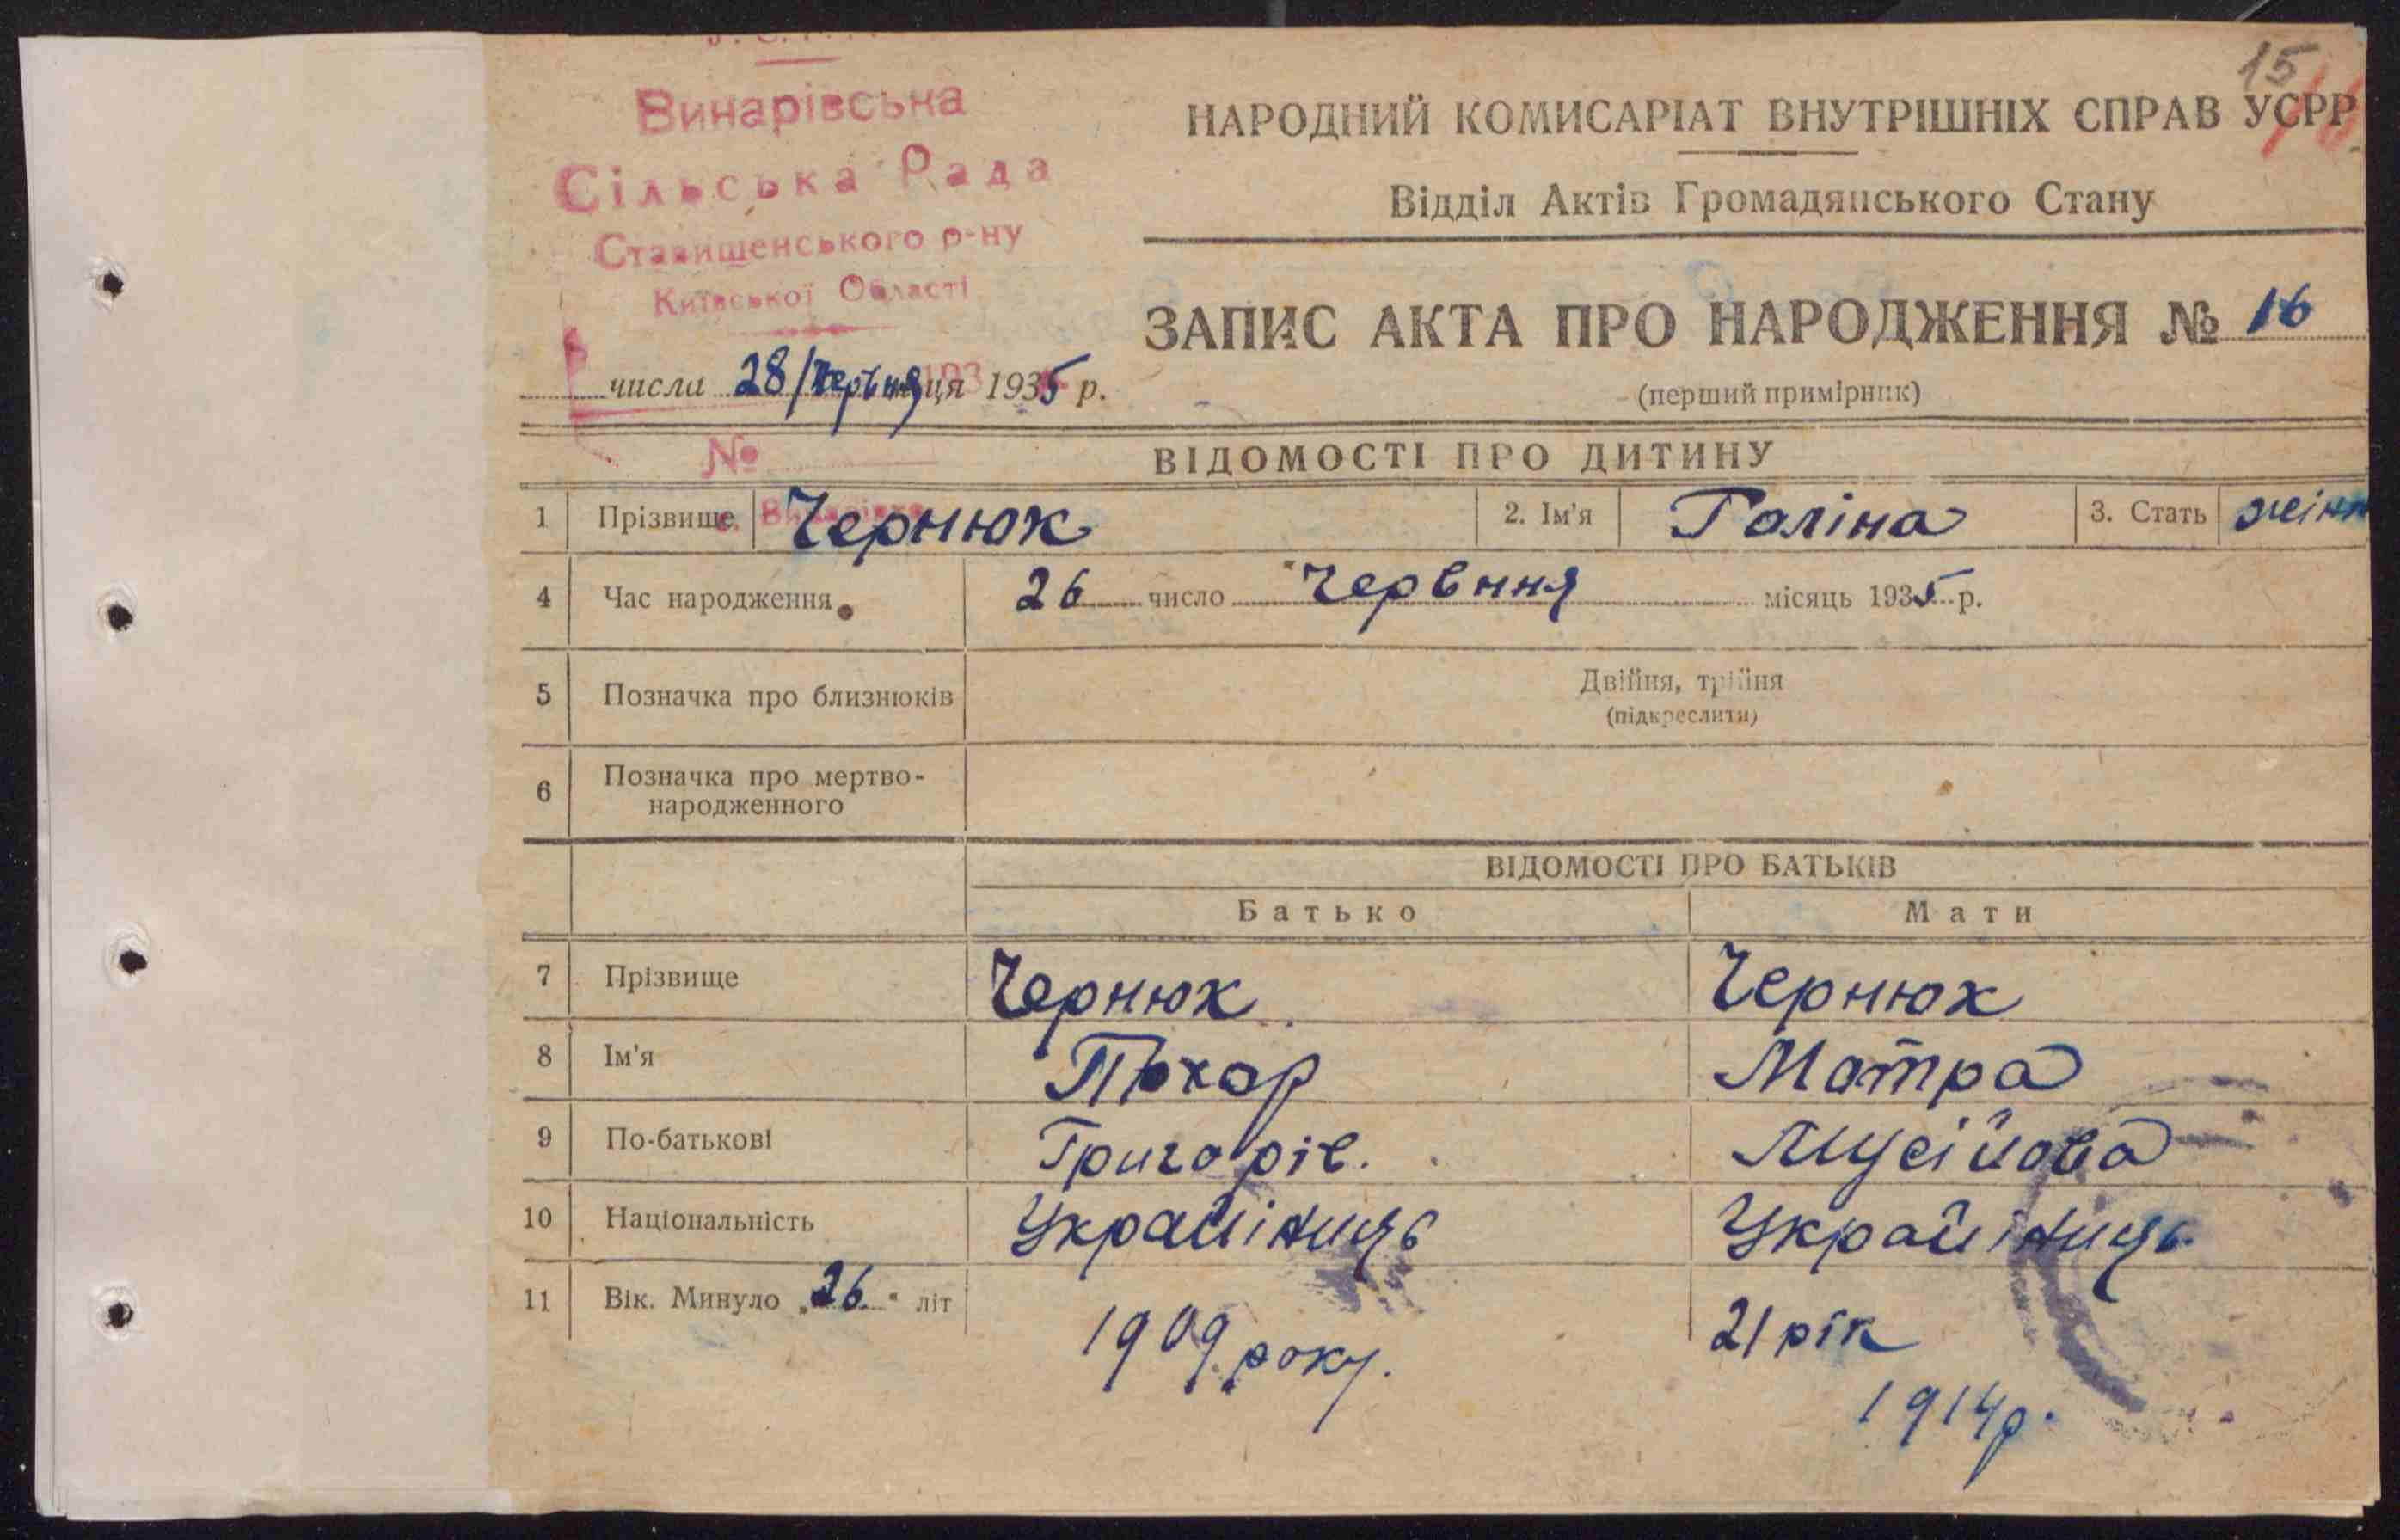 15
У. С. Р. Р.
Винарівська
Сільська Рада
Ставищенського р-ну
Київської Області
числа 28/Червня ця 1935 р.
№
НАРОДНИЙ КОМИСАРІАТ ВНУТРІШНІХ СПРАВ УСРР
Відділ Актів Громадянського Стану
ЗАПИС АКТА ПРО НАРОДЖЕННЯ № 16
(перший примірник)
ВІДОМОСТІ ПРО ДИТИНУ
1 Прізвище Чернюк 2. Ім'я Галіна 3. Стать жін
4 Час народження 26 число Червння місяць 1935 р.
5 Позначка про близнюків Двійня, трійня
(підкреслити)
6 Позначка про мертво-
народженного
ВІДОМОСТІ ПРО БАТЬКІВ
Батько Мати
7 Прізвище Чернюк Чернюк
8 Ім'я Похор Мотра
9 По-батькові Григорів. Мусійова
10 Національність Украйіниць Украйіниць
11 Вік. Минуло „26" літ 1909 року. 21 рік
1914 р.